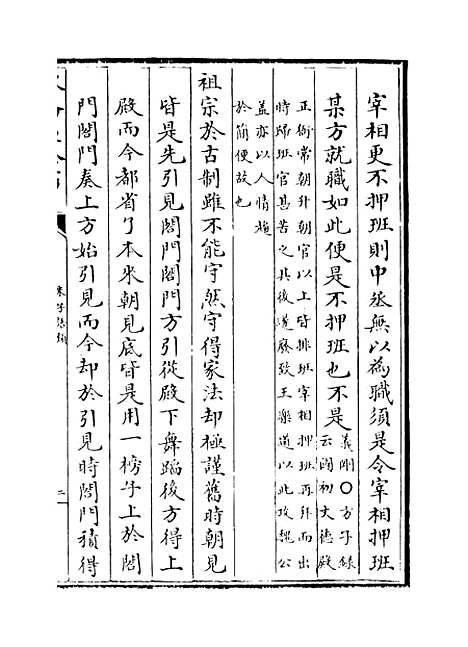 宰相更不押班則中丞無以為職須是令宰相押班
某方就職如此便是不押班也不是
義剛○方子録
云國初文德殿
正衙常朝升朝官以上皆排班宰相押班再拜而出
時歸班官甚苦之其後遂廢致王樂道以此攻魏公
蓋亦以人情趨
於簡便故也
祖宗於古制雖不能守然守得家法却極謹舊時朝見
皆是先引見閤門閤門方引從殿下舞蹈後方得上
殿而今都省了本來朝見底皆是用一榜子上於閤
門閤門奏上方始引見而今却於引見時閤門積得
朱子語類
二